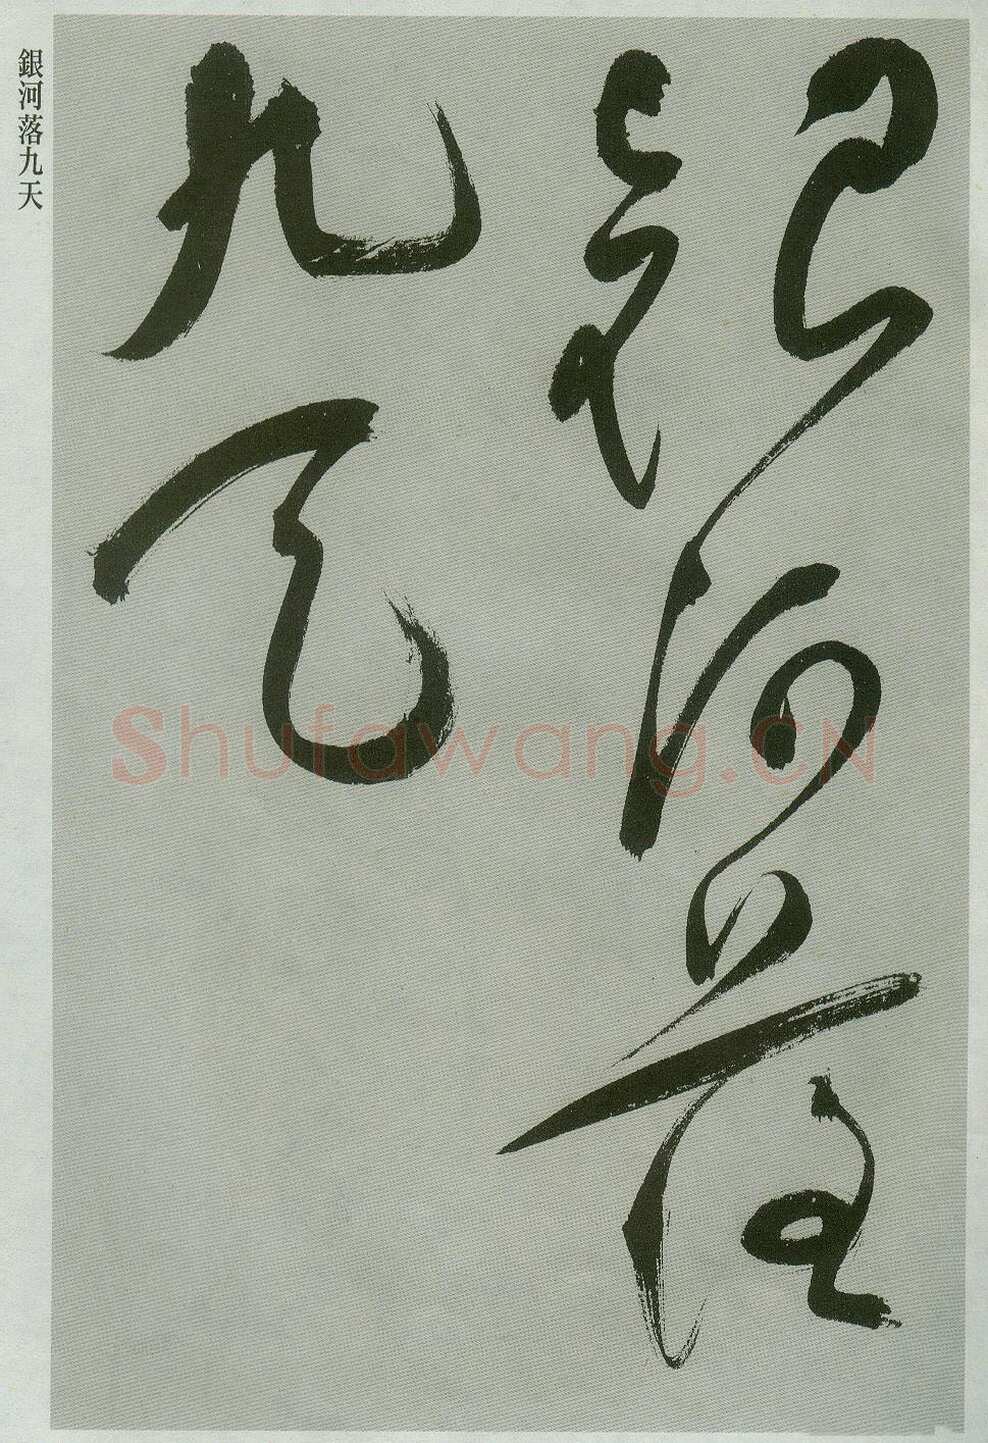 銀河落
九天
銀河落九天
Shufawang.CN